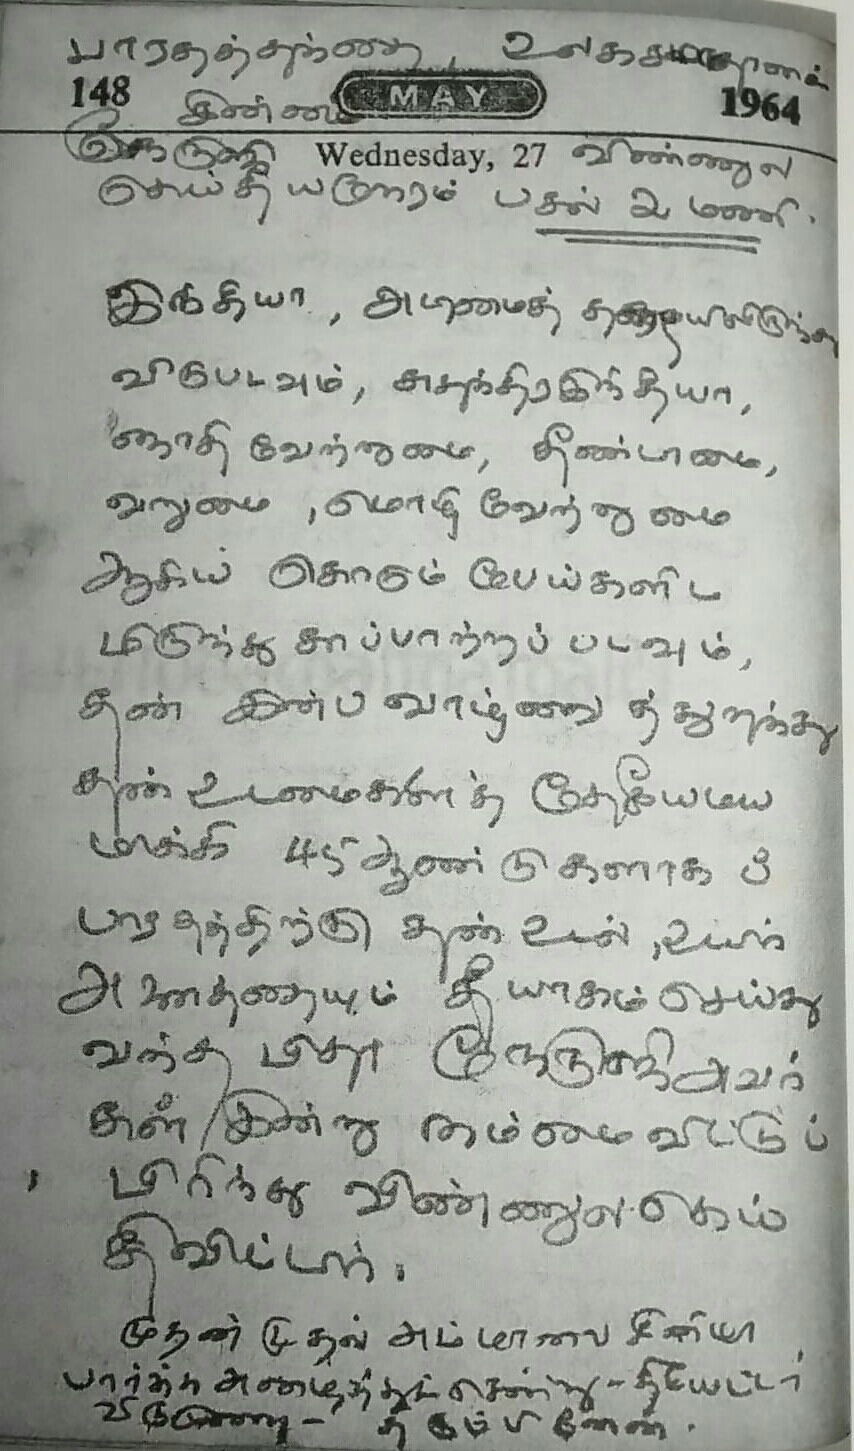 பாரதத்தந்தை, உலகசமாதானச்
148 MAY 1964
சின்னம்
நேருஜி Wednesday, 27 விண்ணுல
கெய்தியநேரம் பகல் 2 மணி.
இந்தியா, அடிமைத் தளையிலிருந்து
விடுபடவும், சுதந்திரஇந்தியா,
ஜாதி வேற்றுமை, தீண்டாமை,
வறுமை, மொழி வேற்றுமை
ஆகிய கொடும் பேய்களிட
மிருந்து காப்பாற்றப் படவும்,
தன் இன்ப வாழ்வு த்துறந்து
தன் உடமைகளைத் தேசீயமய
மாக்கி 45 ஆண்டுகளாகப்
பாரதத்திற்கு தன் உடல், உயிர்
அனைத்தையும் தியாகம் செய்து
வந்த பிதா நேருஜி அவர்
கள் இன்று நம்மை விட்டுப்
பிரிந்து விண்ணுல கெய்
திவிட்டார்.
முதன் முதல் அம்மாவை சினிமா
பார்க்க அழைத்துச் சென்று - தியேட்டர்
விடுமுறை - திரும்பினேன்.